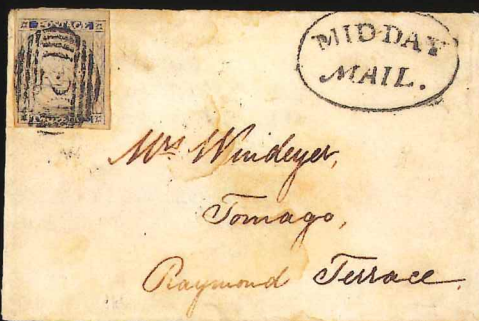 POSTAGE
MID-DAY
MAIL.
Mrs Windeyer,
Tomago,
Raymond Terrace.